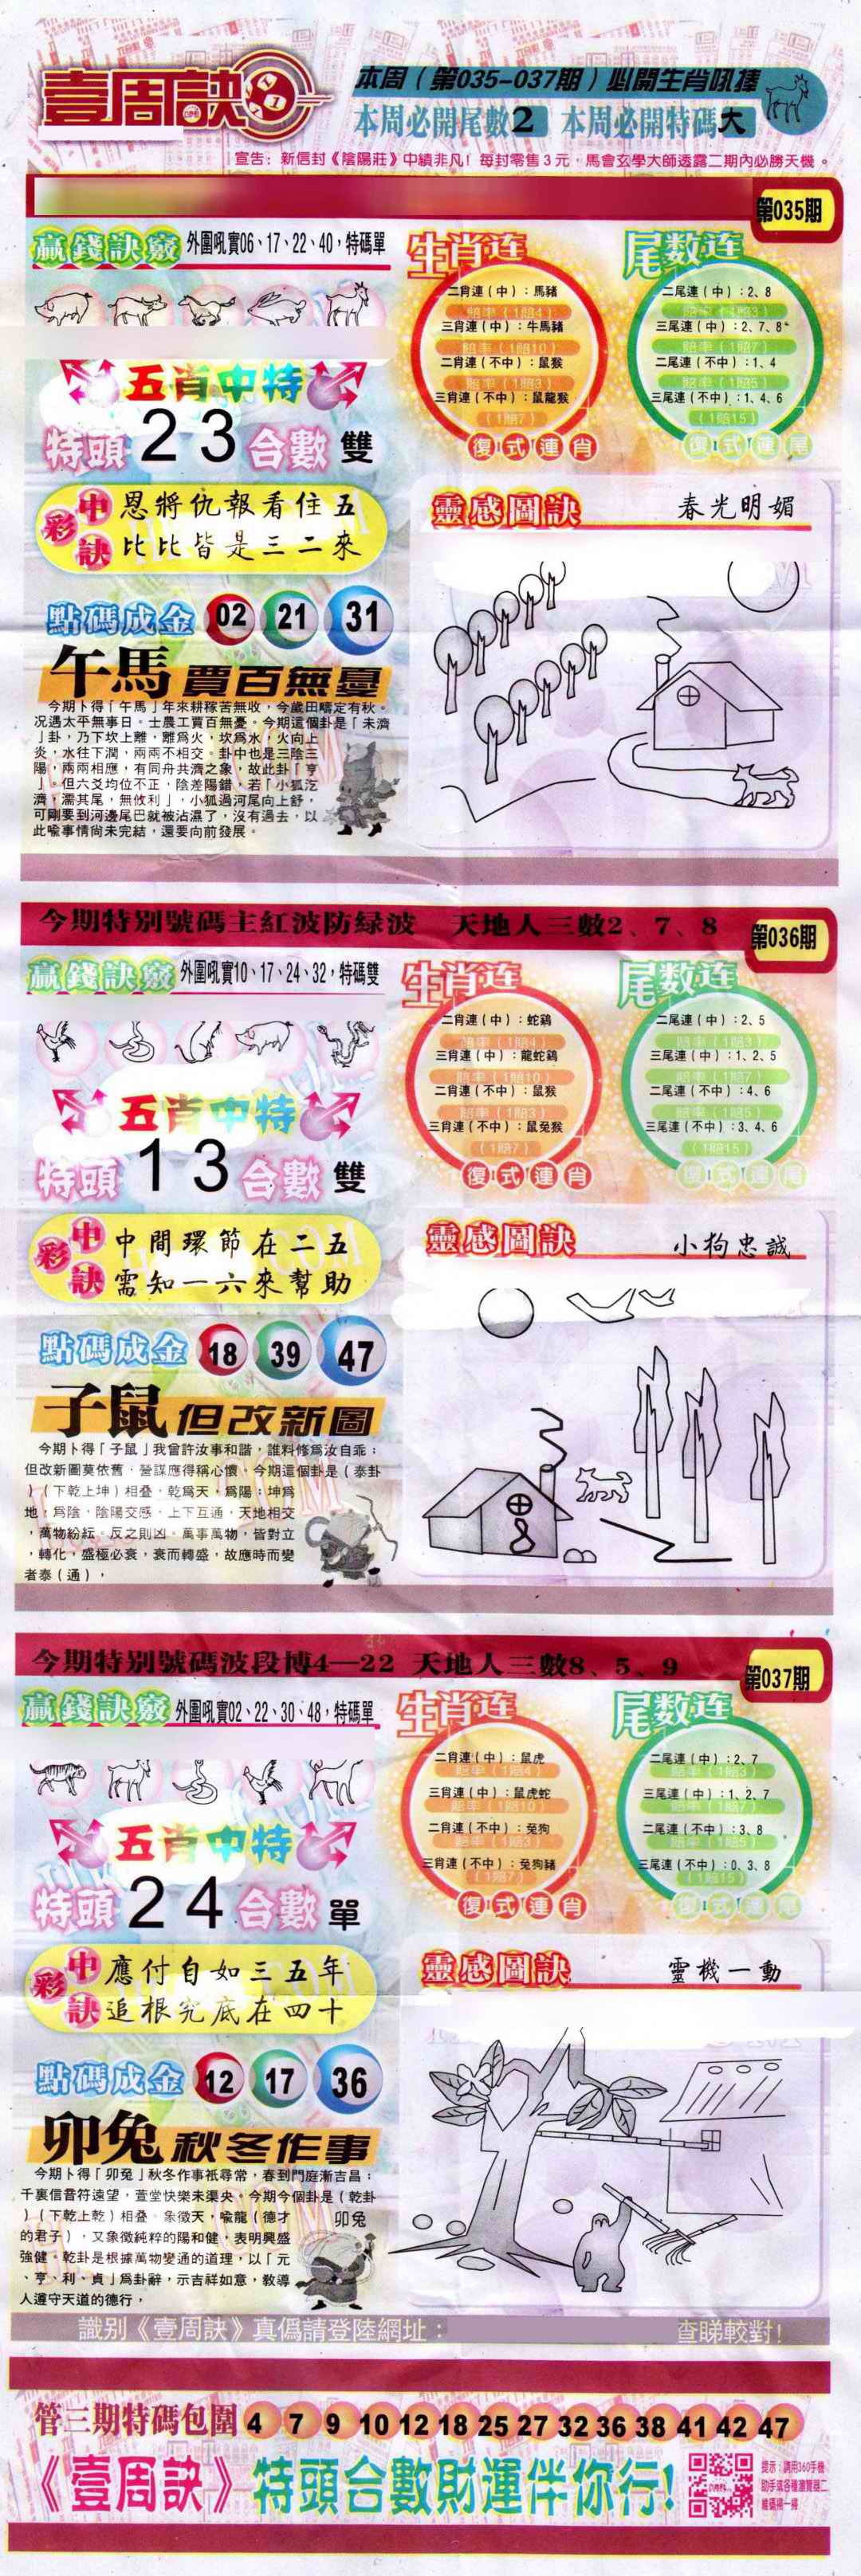 壹周訣
本周（第035-037期）必開生肖吼揰
本周必開尾數2 本周必開特碼大
宣告：新信封《陰陽莊》中績非凡！每封零售3元，馬會玄學大師透露二期內必勝天機。
第035期
贏錢訣竅 外圍吼實06、17、22、40，特碼單
五肖中特
特頭 2 3 合數 雙
中彩訣
恩將仇報看住五
比比皆是三二來
點碼成金 02 21 31
午馬 賈百無憂
今期卜得「午馬」年來耕稼苦無收，今歲田疇定有秋。
況遇太平無事日。士農工賈百無憂。今期這個卦是「未濟
」卦，乃下坎上離，離爲火，坎爲水，火向上
炎，水往下潤，兩兩不相交。卦中也是三陰三
陽，兩兩相應，有同舟共濟之象，故此卦「亨
」。但六爻均位不正，陰差陽錯，若「小狐汔
濟，濡其尾，無攸利」，小狐過河尾向上舒，
可剛要到河邊尾巴就被沾濕了，沒有過去，以
此喩事情尚未完結，還要向前發展。
生肖连
二肖連（中）：馬豬
賠率（1賠4）
三肖連（中）：牛馬豬
賠率（1賠10）
二肖連（不中）：鼠猴
賠率（1賠3）
三肖連（不中）：鼠龍猴
（1賠7）
復式連肖
尾数连
二尾連（中）：2、8
賠率（1賠3）
三尾連（中）：2、7、8
賠率（1賠7）
二尾連（不中）：1、4
賠率（1賠5）
三尾連（不中）：1、4、6
（1賠15）
復式連尾
靈感圖訣 春光明媚
今期特别號碼主紅波防緑波 天地人三數2、7、8
第036期
贏錢訣竅 外圍吼實10、17、24、32，特碼雙
五肖中特
特頭 1 3 合數 雙
中彩訣
中間環節在二五
需知一六來幫助
點碼成金 18 39 47
子鼠 但改新圖
今期卜得「子鼠」我曾許汝事和諧，誰料修爲汝自乖；
但改新圖莫依舊，營謀應得稱心懷。今期這個卦是（泰卦
）（下乾上坤）相叠，乾爲天，爲陽；坤爲
地，爲陰，陰陽交感，上下互通，天地相交
，萬物紛紜。反之則凶。萬事萬物，皆對立
，轉化，盛極必衰，衰而轉盛，故應時而變
者泰（通），
生肖连
二肖連（中）：蛇鷄
賠率（1賠4）
三肖連（中）：龍蛇鷄
賠率（1賠10）
二肖連（不中）：鼠猴
賠率（1賠3）
三肖連（不中）：鼠兔猴
（1賠7）
復式連肖
尾数连
二尾連（中）：2、5
賠率（1賠3）
三尾連（中）：1、2、5
賠率（1賠7）
二尾連（不中）：4、6
賠率（1賠5）
三尾連（不中）：3、4、6
（1賠15）
復式連尾
靈感圖訣 小狗忠誠
今期特别號碼波段博4—22 天地人三數8、5、9
第037期
贏錢訣竅 外圍吼實02、22、30、48，特碼單
五肖中特
特頭 2 4 合數 單
中彩訣
應付自如三五年
追根究底在四十
點碼成金 12 17 36
卯兔 秋冬作事
今期卜得「卯兔」秋冬作事祇尋常，春到門庭漸吉昌；
千裏信音符遠望，萱堂快樂未渠央。今期今個卦是（乾卦
）（下乾上乾）相叠。象徵天，喩龍（德才
的君子），又象徵純粹的陽和健，表明興盛
強健。乾卦是根據萬物變通的道理，以「元
、亨、利、貞」爲卦辭，示吉祥如意，教導
人遵守天道的德行，
卯兔
生肖连
二肖連（中）：鼠虎
賠率（1賠4）
三肖連（中）：鼠虎蛇
賠率（1賠10）
二肖連（不中）：兔狗
賠率（1賠3）
三肖連（不中）：兔狗豬
（1賠7）
復式連肖
尾数连
二尾連（中）：2、7
賠率（1賠3）
三尾連（中）：1、2、7
賠率（1賠7）
二尾連（不中）：3、8
賠率（1賠5）
三尾連（不中）：0、3、8
（1賠15）
復式連尾
靈感圖訣 靈機一動
識别《壹周訣》真僞請登陸網址： 查睇較對！
管三期特碼包圍 4 7 9 10 12 18 25 27 32 36 38 41 42 47
《壹周訣》特頭合數財運伴你行！
提示：調用360手機
助手或各種瀏覽器二
維碼掃一掃